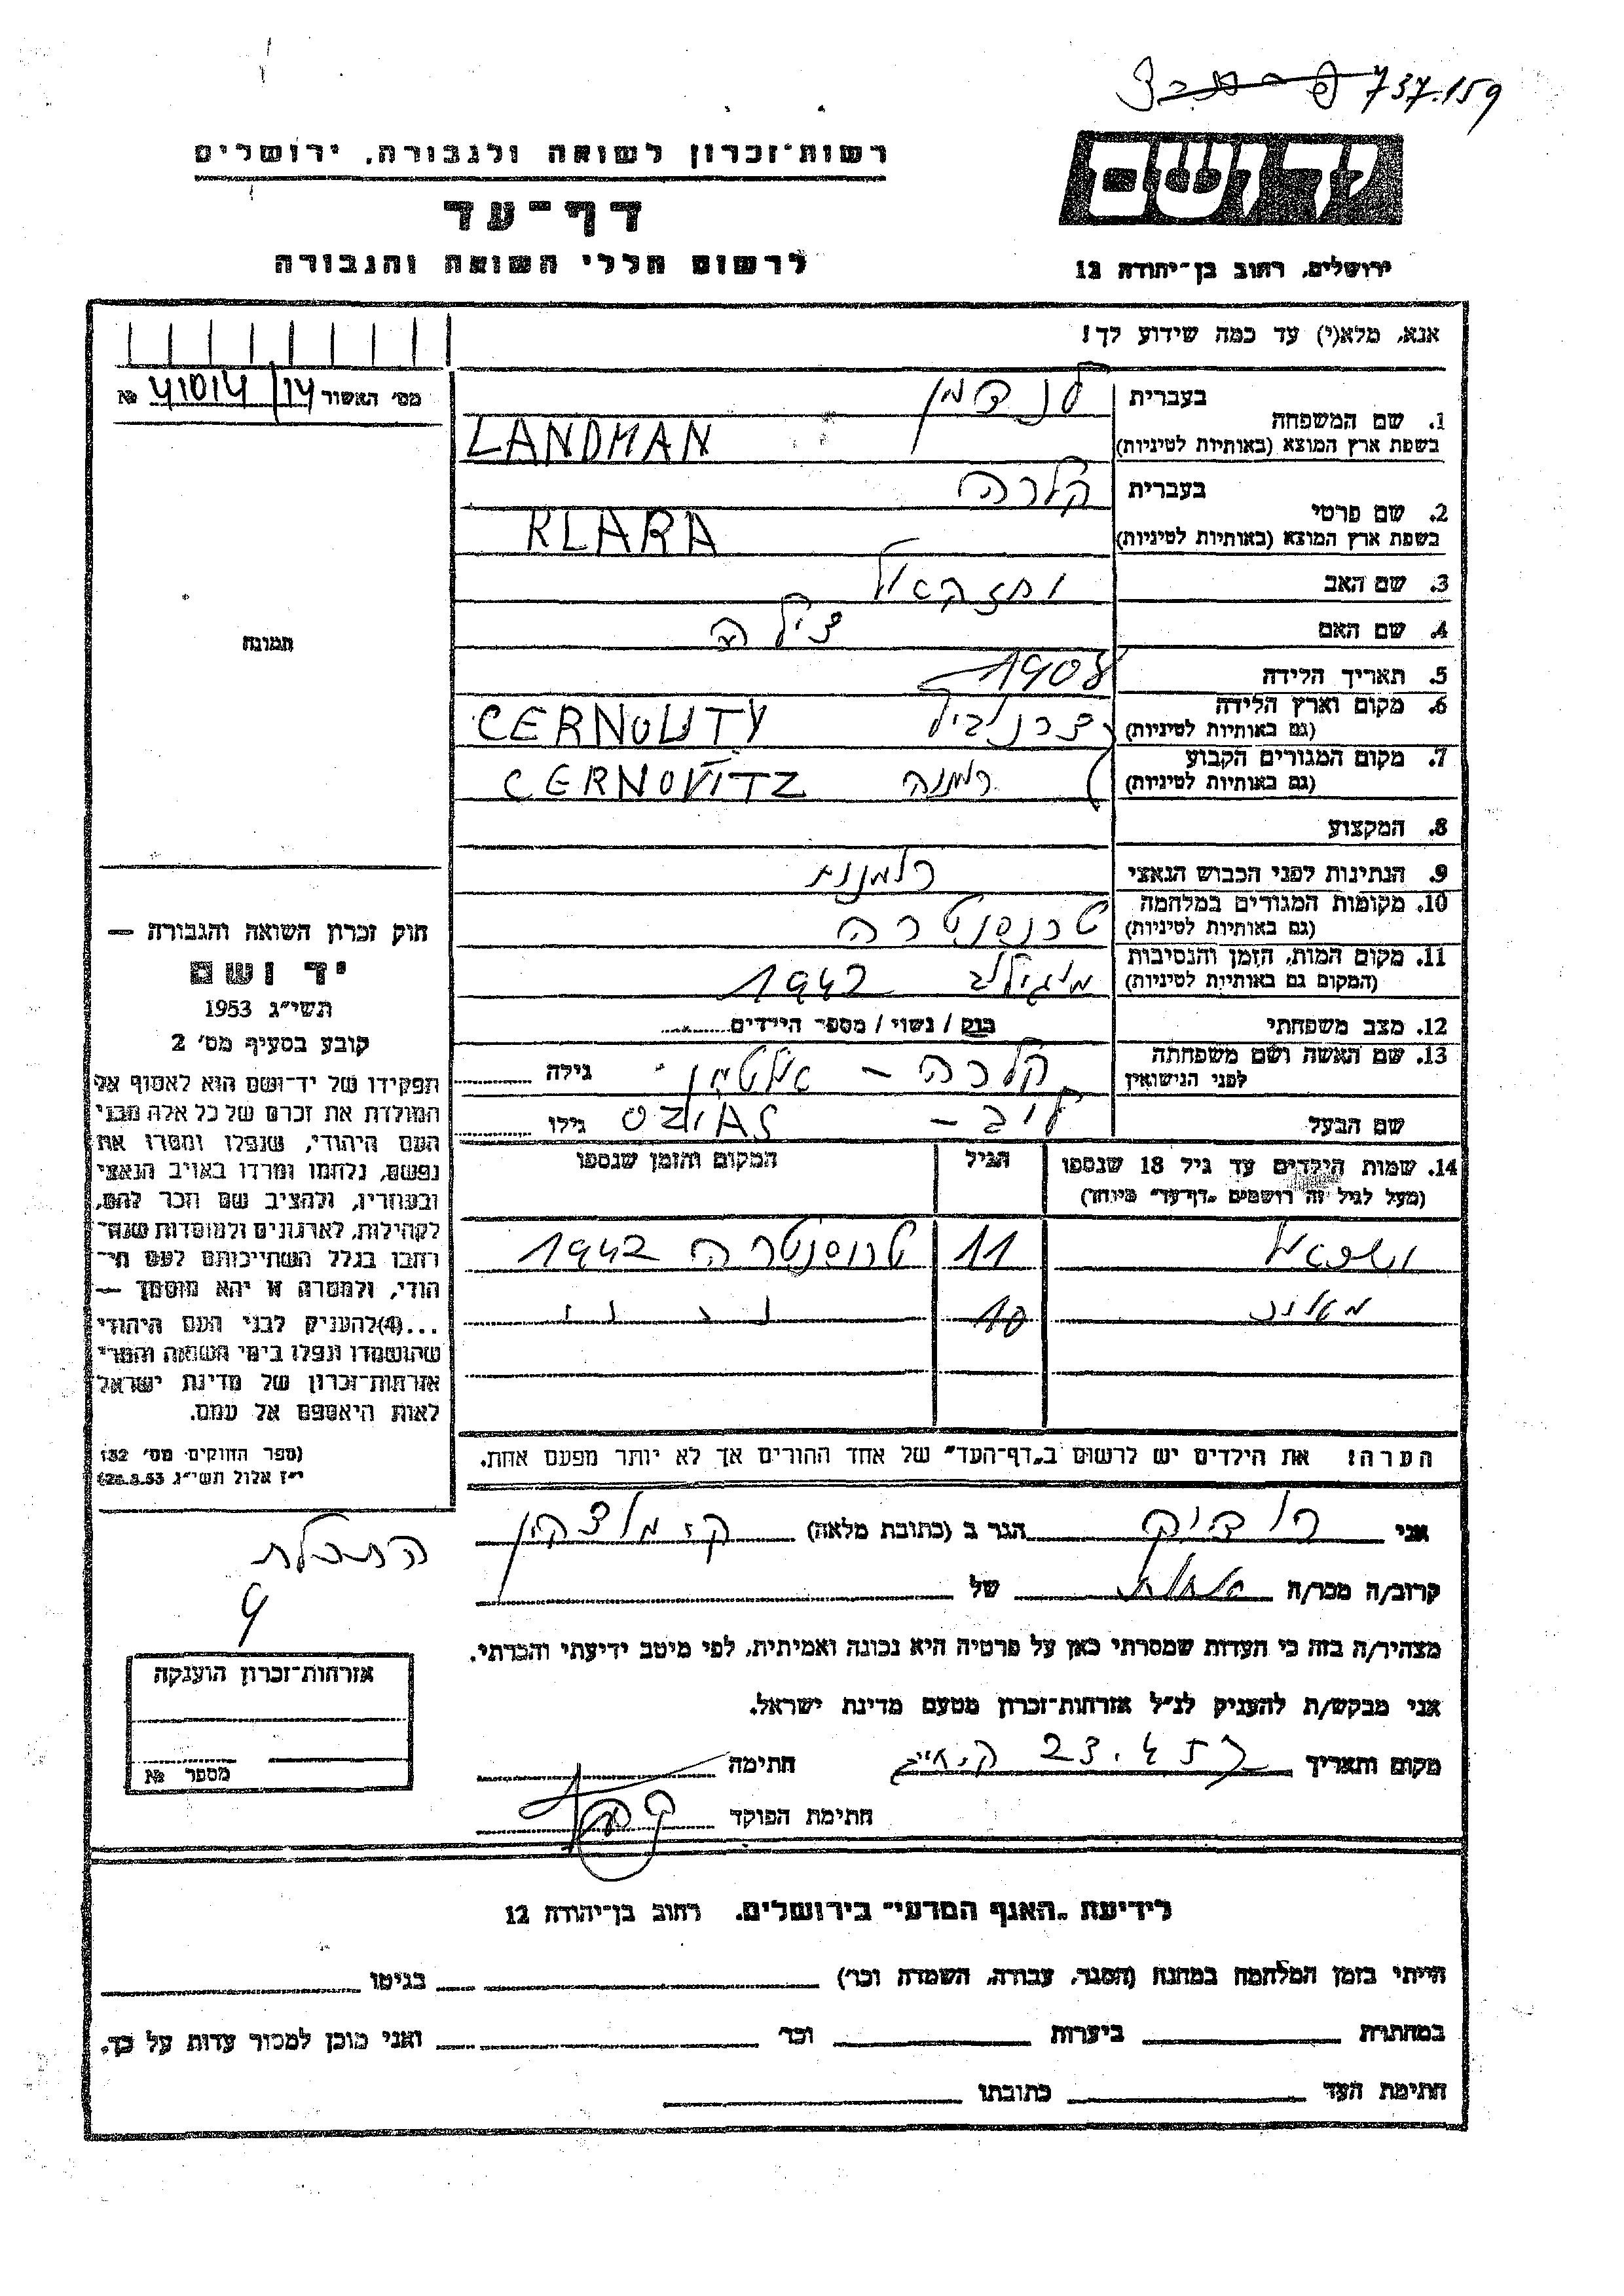 737.159
רשות־זכרון לשואה ולגבורה, ירושלים
יד ושם
דף־עד
לרשום חללי השואה והגבורה
ירושלים, רחוב בן־יהודה 12
אנא, מלא(י) עד כמה שידוע לך!
מס' האשור 41014/14 №
1. שם המשפחה בעברית לנדמן
בשפת ארץ המוצא (באותיות לטיניות) LANDMAN
2. שם פרטי בעברית קלרה
בשפת ארץ המוצא (באותיות לטיניות) KLARA
3. שם האב
4. שם האם צילה
5. תאריך הלידה 1908
6. מקום וארץ הלידה CERNOUTY
(גם באותיות לטיניות)
7. מקום המגורים הקבוע רמניה CERNOVITZ
(גם באותיות לטיניות)
8. המקצוע
9. הנתינות לפני הכבוש הנאצי רומנית
10. מקומות המגורים במלחמה טרנסנסטריה
(גם באותיות לטיניות)
11. מקום המות, הזמן והנסיבות מוגילב 1942
(המקום גם באותיות לטיניות)
12. מצב משפחתי רווק / נשוי / מספר הילדים
13. שם האשה ושם משפחתה קלרה – גילה
לפני הנישואין
שם הבעל ליב – OZIAS גילו
14. שמות הילדים עד גיל 18 שנספו הגיל המקום והזמן שנספו
(מעל לגיל זה רושמים "דף־עד" מיוחד)
11 טרנסנסטריה 1942
10
הערה! את הילדים יש לרשום ב"דף־העד" של אחד ההורים אך לא יותר מפעם אחת.
תמונה
חוק זכרון השואה והגבורה —
יד ושם
תשי"ג 1953
קובע בסעיף מס' 2
תפקידו של יד־ושם הוא לאסוף אל
המולדת את זכרם של כל אלה מבני
העם היהודי, שנפלו ומסרו את
נפשם, נלחמו ומרדו באויב הנאצי
ובעוזריו, ולהציב שם וזכר להם,
לקהילות, לארגונים ולמוסדות שנח־
רבו בגלל השתייכותם לעם הי־
הודי, ולמטרה זו יהא מוסמך —
...(4) להעניק לבני העם היהודי
שהושמדו ונפלו בימי השואה והמרי
אזרחות־זכרון של מדינת ישראל
לאות היאספם אל עמם.
(ספר החוקים מס' 132
י"ז אלול תשי"ג 28.8.53)
אני הגר ב (כתובת מלאה)
התכלת 9
קרוב/ה מכר/ה אחות של
מצהיר/ה בזה כי העדות שמסרתי כאן על פרטיה היא נכונה ואמיתית, לפי מיטב ידיעתי והכרתי.
אני מבקש/ת להעניק לנ"ל אזרחות־זכרון מטעם מדינת ישראל.
מקום ותאריך 23.4.57 חתימה
חתימת הפוקד
אזרחות־זכרון הוענקה
מספר №
לידיעת "האגף המדעי" בירושלים, רחוב בן־יהודה 12
הייתי בזמן המלחמה במחנה (הסגר, עבודה, השמדה וכו') בגיטו
במחתרת ביערות וכו' ואני מוכן למסור עדות על כך.
חתימת העד כתובתו